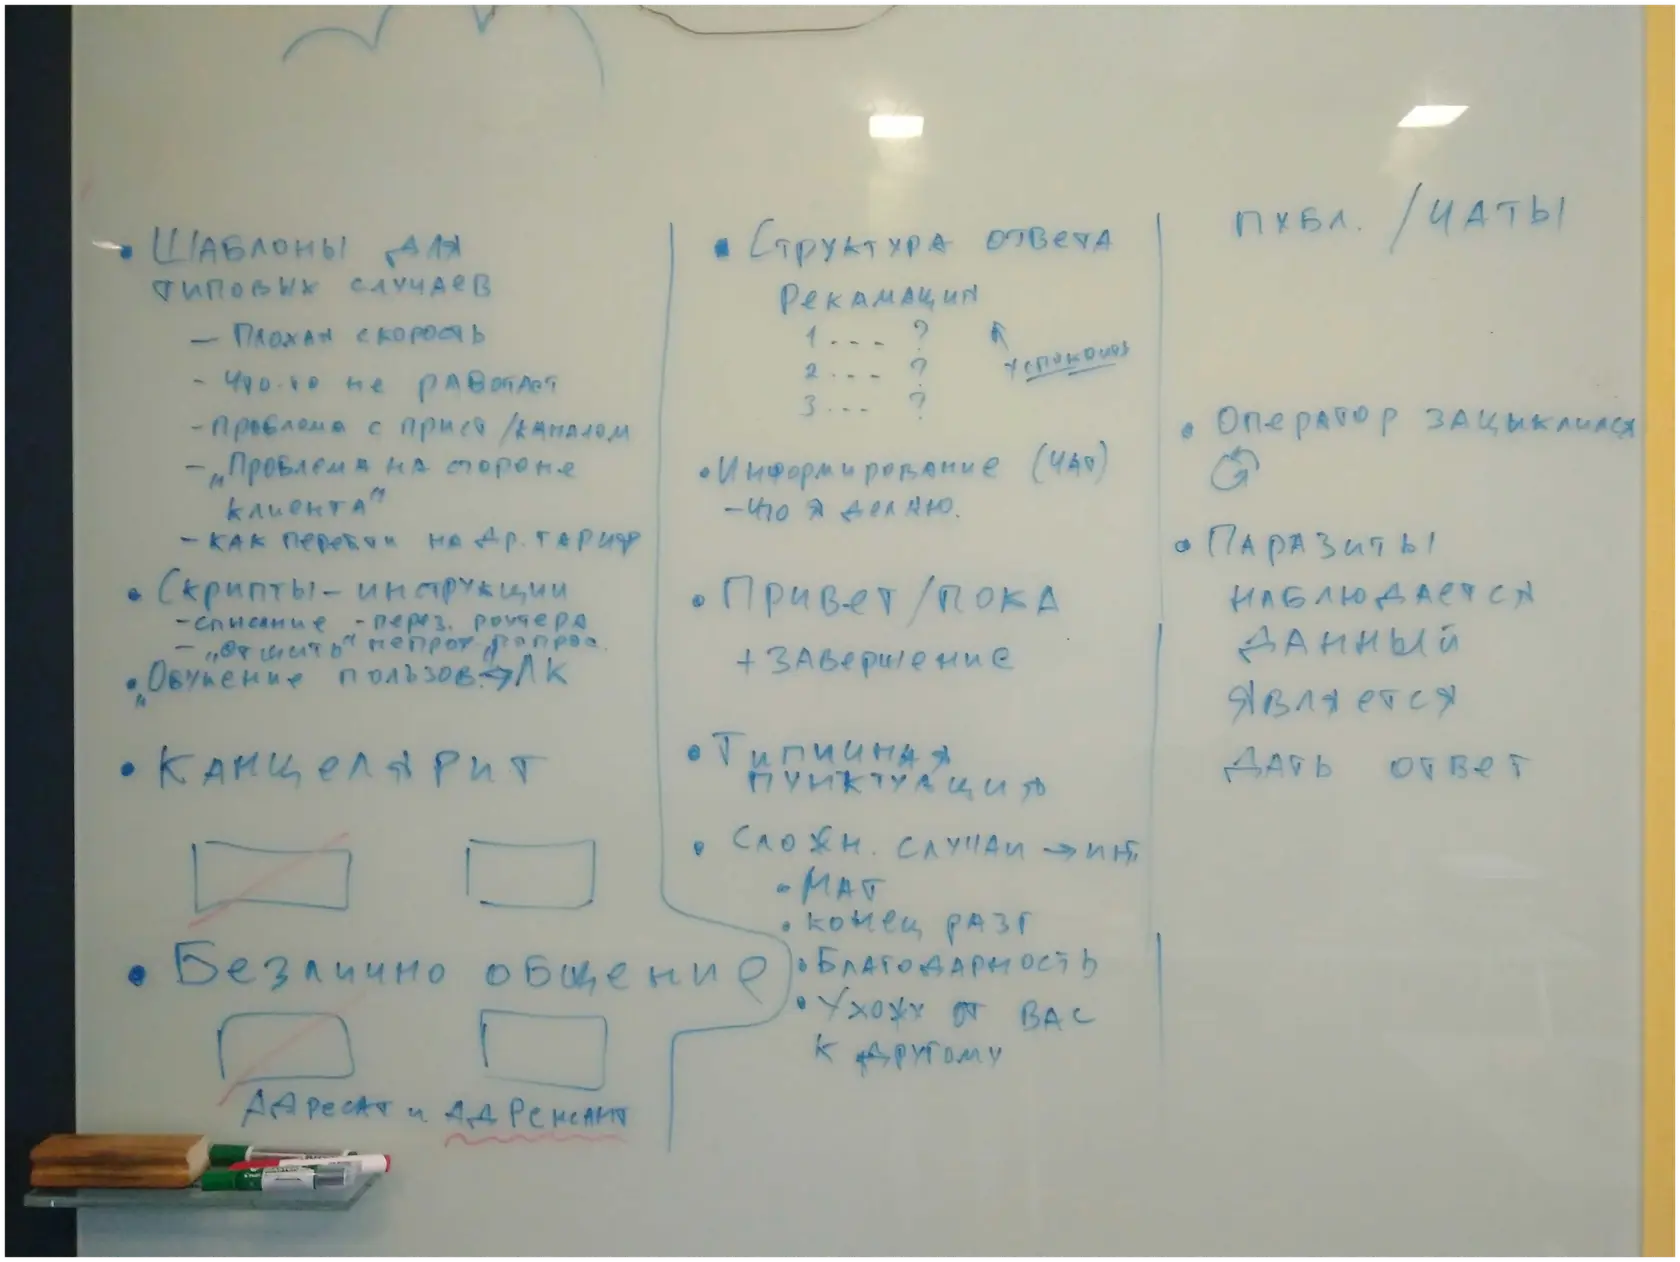 • Шаблоны для
типовых случаев
— Плохая скорость
- Что-то не работает
- Проблема с прист/каналом
- „Проблема на стороне
клиента"
- как перейти на др. тариф
• Скрипты – инструкции
- списание - перез. роутера
- „отшить" непроф.
• „Обучение пользов. → ЛК
• Канцелярит
• Безлично общение
Адресат и адренсант
• Структура ответа
Рекамации
1 .... ?
2 .... ?
3 ... ?
успокоить
• Информирование (чат)
- Что я делаю.
• Привет/пока
+ завершение
• Типичная
пунктуация
• Сложн. случаи → инт.
• Мат
• конец разг
• Благодарность
• Ухожу от вас
к другому
публ. / чаты
• Оператор зацыклился
• Паразиты
наблюдается
данный
является
дать ответ